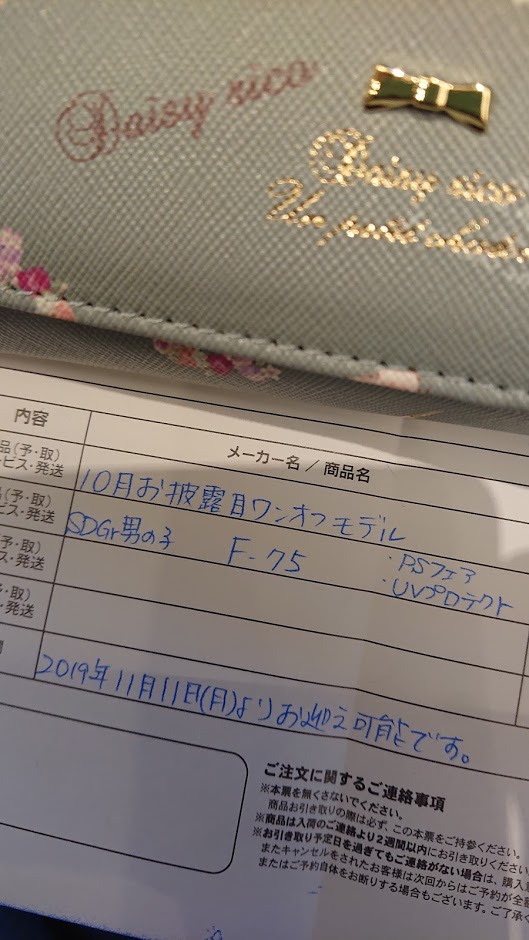 Daisy rico
Daisy rico
内容
メーカー名／商品名
品(予・取)
ービス・発送
10月お披露目ワンオフモデル
(予・取)
ビス・発送
SDGr男の子 F-75 ・PSフェア
・UVプロテクト
予・取)
ス・発送
予・取)
ス・発送
間
2019年11月11日(月)よりお迎え可能です。
ご注文に関するご連絡事項
※本票を無くさないでください。
商品お引き取りの際は必ず、この本票をご持参ください。
※商品は入荷のご連絡より2週間以内にお引き取りください
※お引き取り予定日を過ぎてもご連絡がない場合は、購入
またキャンセルをされたお客様は次回からはご予約が全額
またはご予約自体をお断りする場合もございます。ご了承く